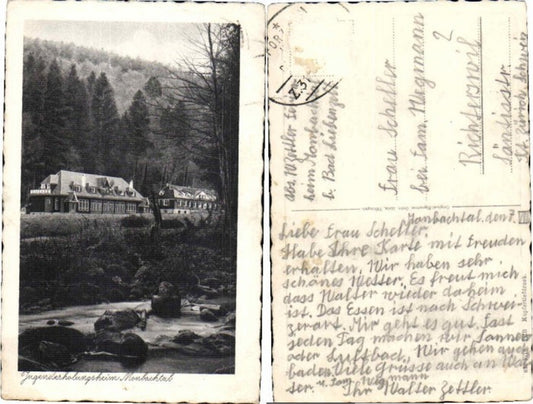 Jugenderholungsheim Monbachtal
abs. W Zettler
heim Monbach
b. Bad Liebenzell
Frau Scheller
bei Fam. Wegmann
2
Richterswil
Zürich Schweiz
Monbachtal, den 7. VIII
Liebe Frau Scheller.
Habe Ihre Karte mit Freuden
erhalten. Wir haben sehr
schönes Wetter. Es freut mich
dass Walter wieder daheim
ist. Das Essen ist nach Schwei-
zerart. Mir geht es gut. Fast
jeden Tag machen wir Sonnen
oder Luftbad. Wir gehen auch
baden. Viele Grüsse auch an Wal-
ter. u. Fam. Wegmann
Ihr Walter Zettler.
Kupfertiefdruck